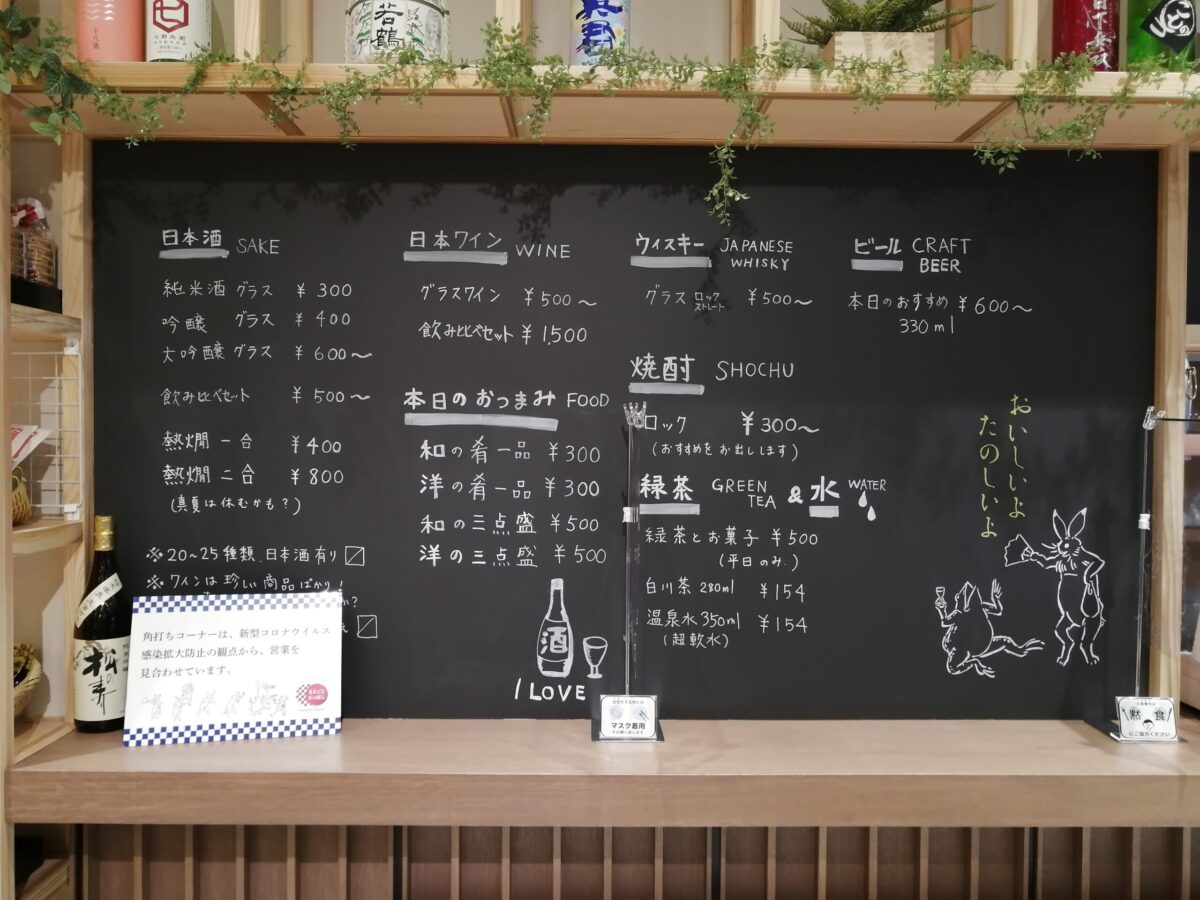 若鶴
日本酒 SAKE
純米酒 グラス ¥300
吟醸 グラス ¥400
大吟醸 グラス ¥600〜
飲み比べセット ¥500〜
熱燗 一合 ¥400
熱燗 二合 ¥800
(真夏は休むかも?)
※20~25種類、日本酒有り
※ワインは珍しい商品ばかり!
か?
日本ワイン WINE
グラスワイン ¥500〜
飲み比べセット ¥1,500
本日のおつまみ FOOD
和の肴一品 ¥300
洋の肴一品 ¥300
和の三点盛 ¥500
洋の三点盛 ¥500
酒
I LOVE
ウィスキー JAPANESE
WHISKY
グラス ロック
ストレート ¥500〜
焼酎 SHOCHU
ロック ¥300〜
(おすすめをお出しします)
緑茶 GREEN
TEA & 水 WATER
緑茶とお菓子 ¥500
(平日のみ.)
白川茶 280ml ¥154
温泉水 350ml ¥154
(超軟水)
ビール CRAFT
BEER
本日のおすすめ ¥600〜
330ml
おいしいよ
たのしいよ
松の寿
角打ちコーナーは、新型コロナウイルス
感染拡大防止の観点から、営業を
見合わせています。
マスク着用
黙食
にご協力ください